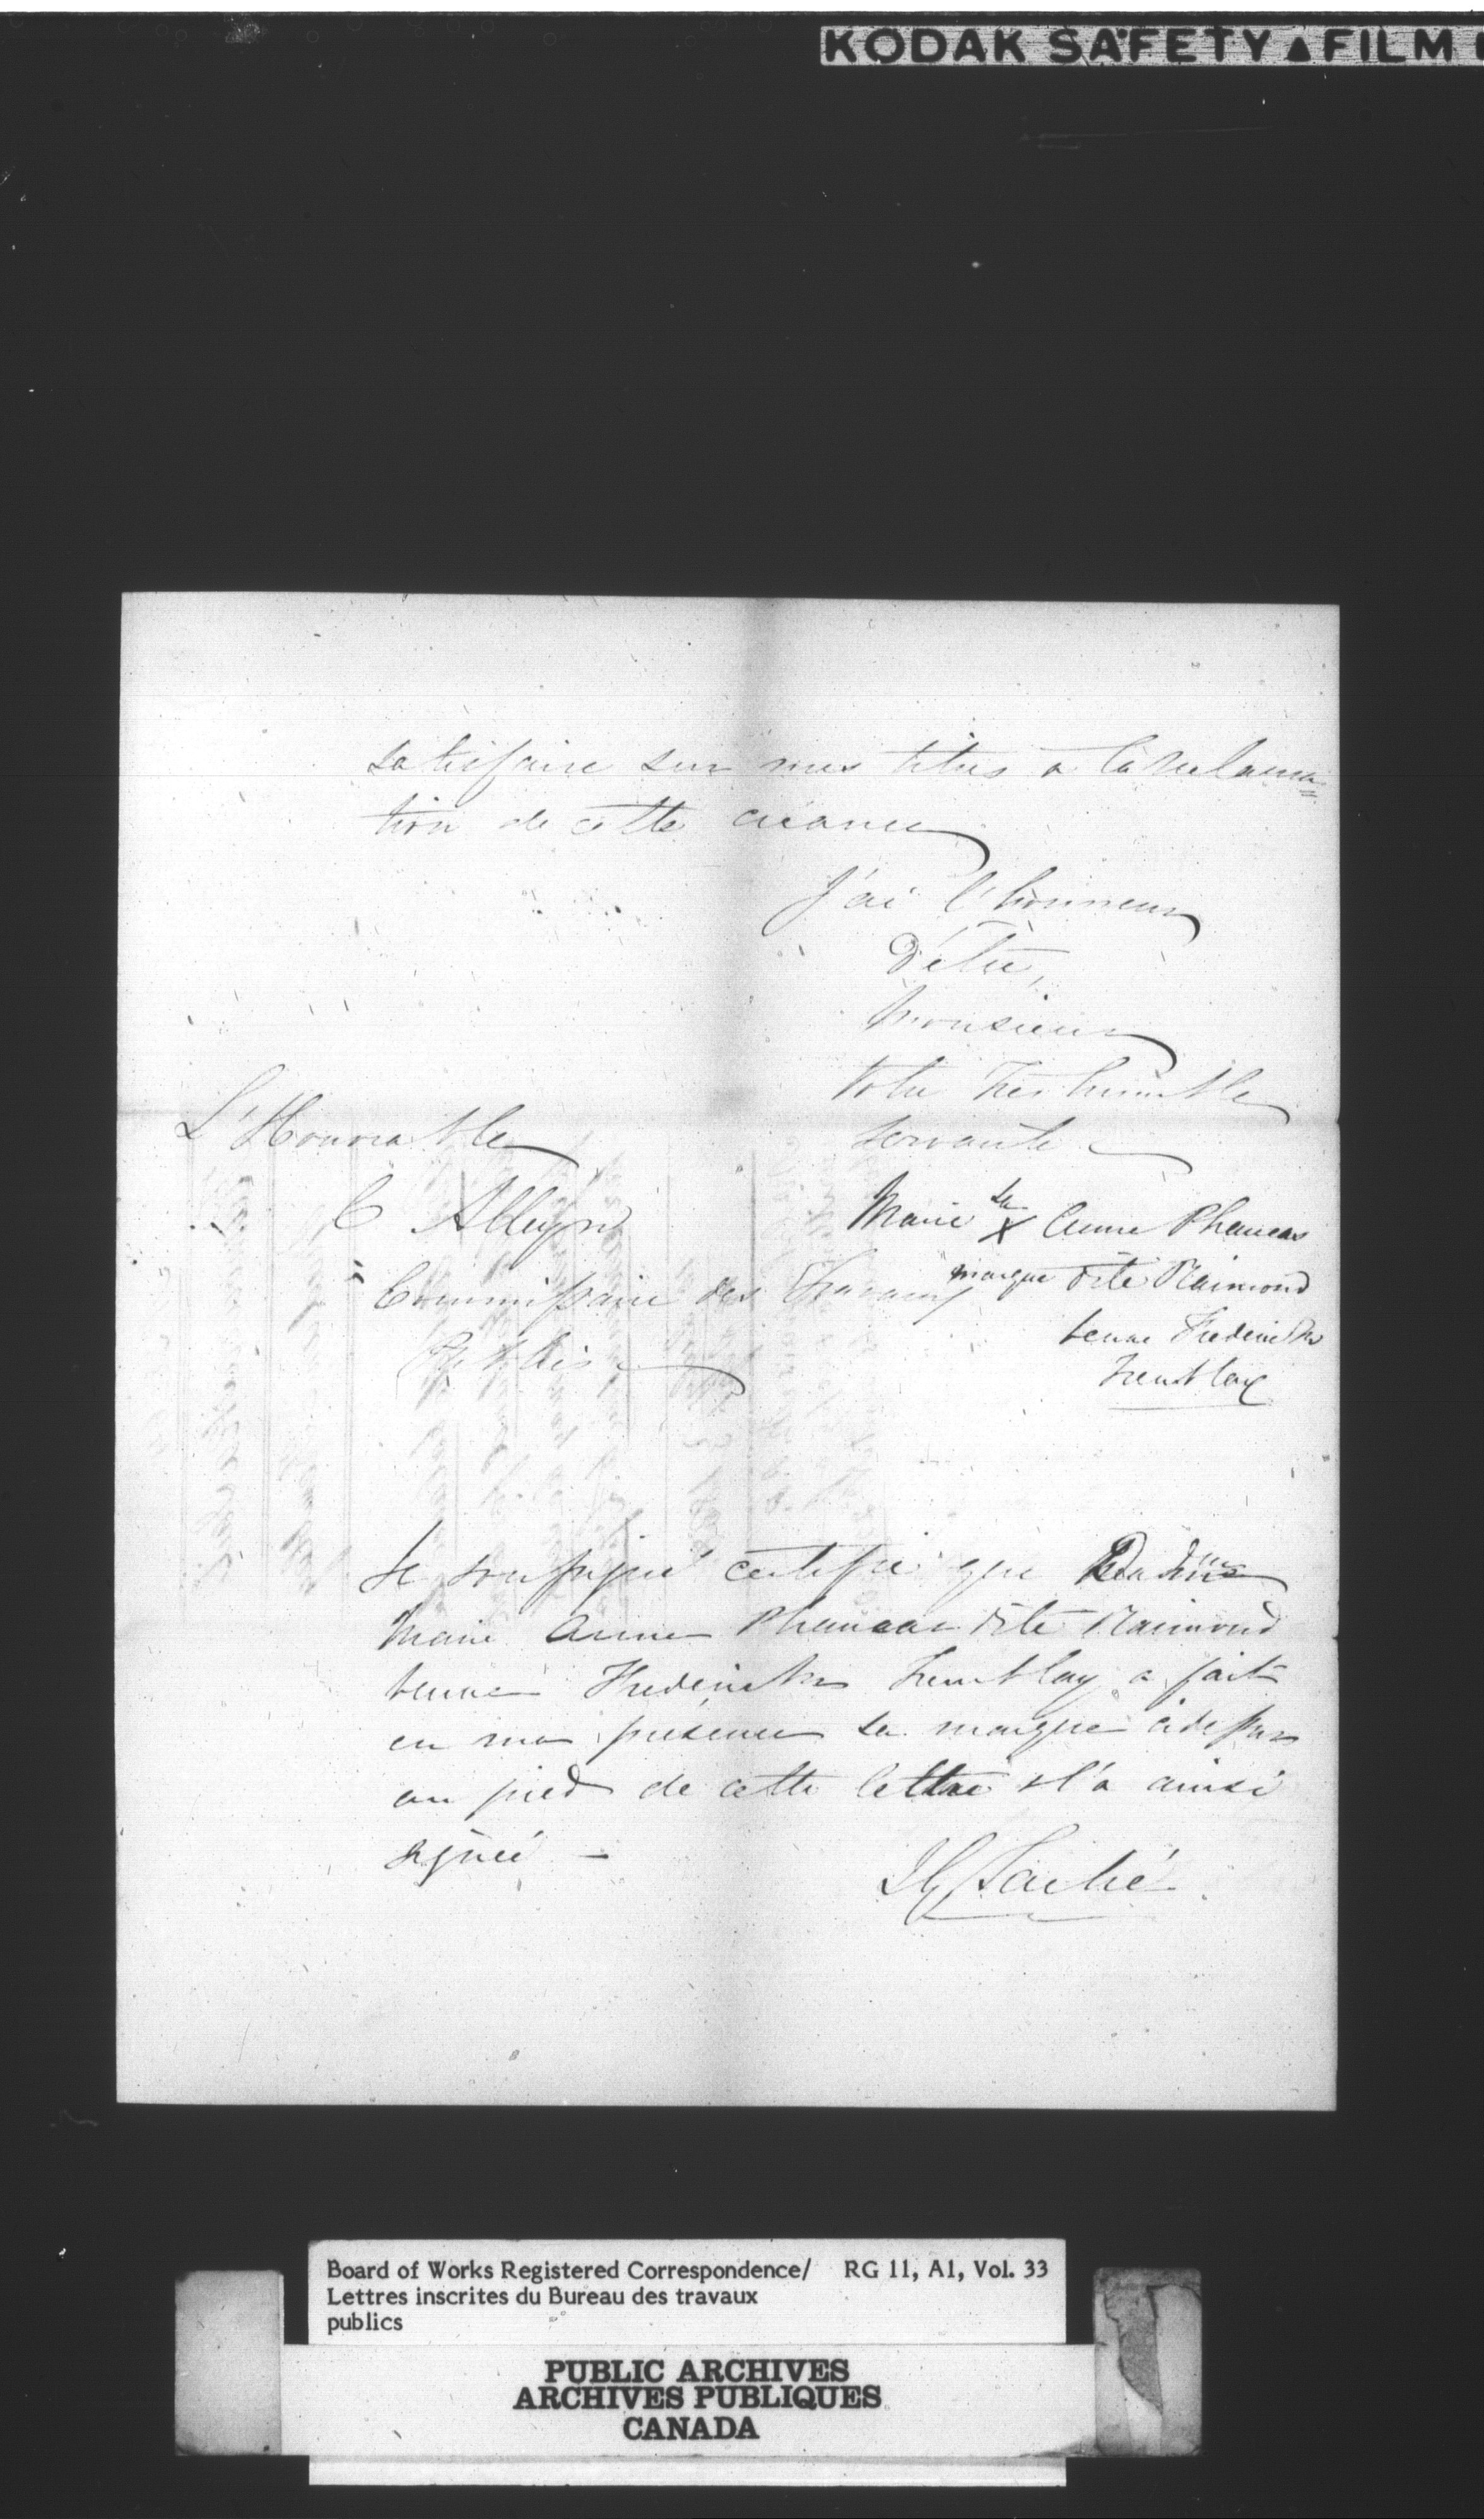 KODAK SAFETY ▲ FILM
satisfaire sur mes titres a la reclama=
tion de cette créance
J'ai l'honneur
d'être,
Monsieur
Votre très humble
servante
L'Honorable
C Alleyn
Commissaire des Travaux
Publics
Marie sa X Anne Phaneas
marque dite Raimond
veuve Frederick
Tremblay
Je soussigné certifie que
Marie Anne Phaneas dite Raimond
veuve Frederick Tremblay a fait
en ma présence sa marque cidessus
au pied de cette lettre & l'a ainsi
signée -
Taché
Board of Works Registered Correspondence/ RG 11, A1, Vol. 33
Lettres inscrites du Bureau des travaux
publics
PUBLIC ARCHIVES
ARCHIVES PUBLIQUES
CANADA